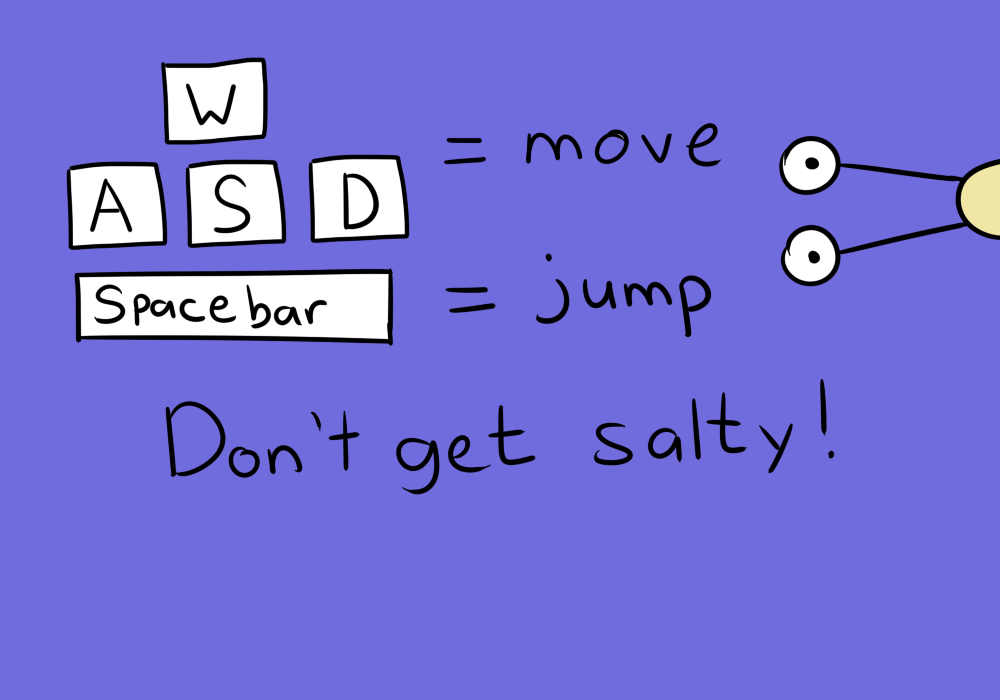 W
= move
A S D
Spacebar = jump
Don't get salty!